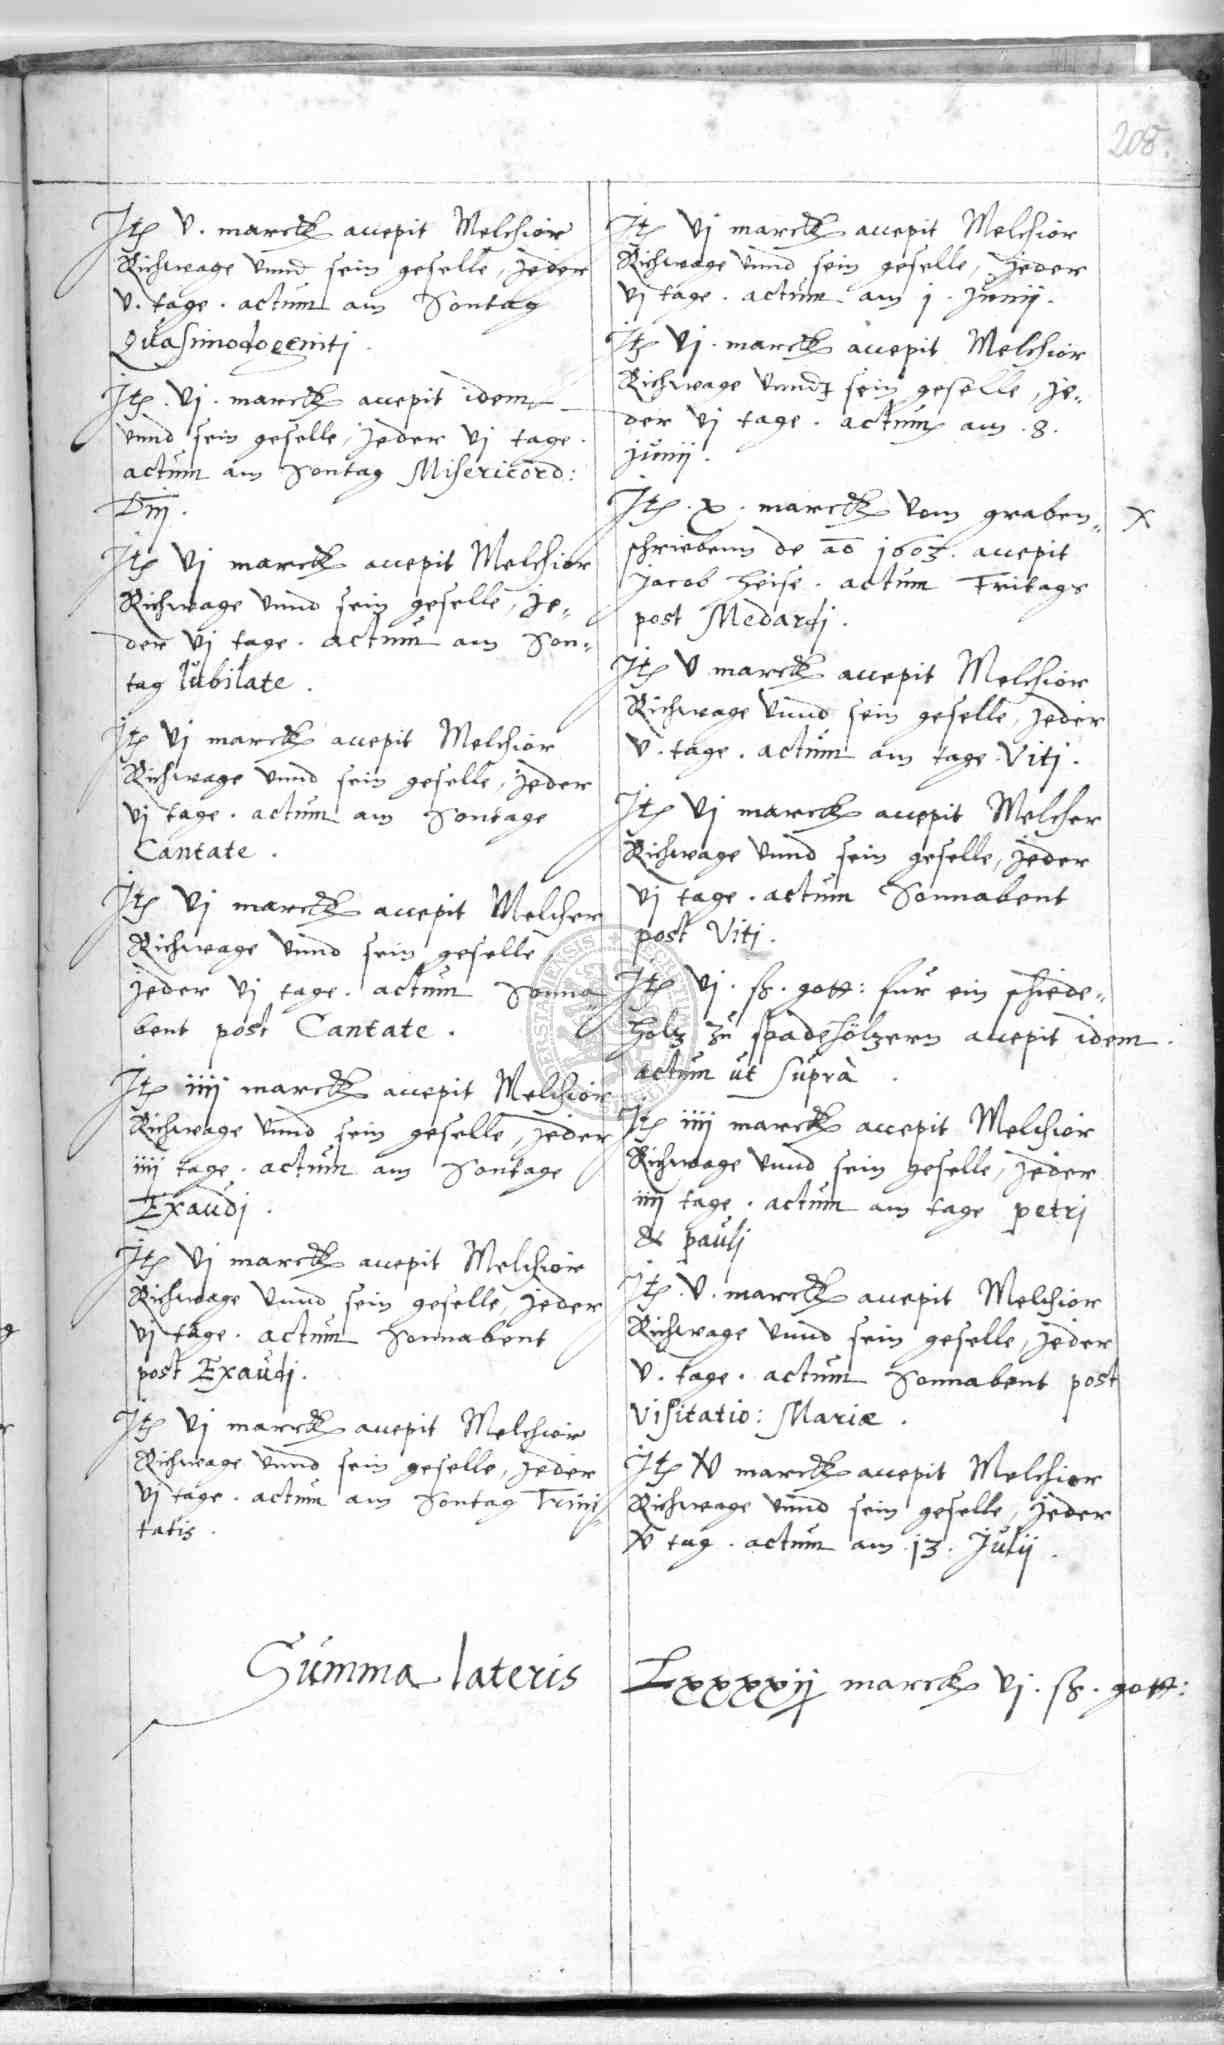 208.
Itꝫ v. marck accepit Melchior
Richwage vnnd sein geselle, jeder
v. tage. actum am Sontag
Quasimodogeniti.
Itꝫ. vj. marck accepit idem
vnnd sein geselle, jeder vj tage.
actum am Sontag Misericord:
Dnj.
Itꝫ vj marck accepit Melchior
Richwage vnnd sein geselle, je„
der vj tage. actum am Son„
tag Iubilate.
Itꝫ vj marck accepit Melchior
Richwage vnnd sein geselle, jeder
vj tage. actum am Sontage
Cantate.
Itꝫ vj marck accepit Melcher
Richwage vnnd sein geselle,
jeder vj tage. actum Sonna„
bent post Cantate.
Itꝫ iiij marck accepit Melchior
Richwage vnnd sein geselle, jeder
iiij tage. actum am Sontage
Exaudj.
Itꝫ vj marck accepit Melchior
Richwage vnnd sein geselle, jeder
vj tage. actum Sonnabent
post Exaudj.
Itꝫ vj marck accepit Melchior
Richwage vnnd sein geselle, jeder
vj tage. actum am Sontag Trini„
tatis.
Itꝫ vj marck accepit Melchior
Richwage vnnd sein geselle, jeder
vj tage. actum am j. Junij.
Itꝫ vj. marck accepit Melchior
Richwage vnnd sein geselle, je„
der vj tage. actum am .8.
junij.
Itꝫ. x. marck vom graben„ X
schriebenn de aō 1603. accepit
Jacob Heise. actum Fritags
post Medardj.
Itꝫ v marck accepit Melchior
Richwage vnnd sein geselle, jeder
v. tage. actum am tage Vitj.
Itꝫ vj marck accepit Melcher
Richwage vnnd sein geselle, jeder
vj tage. actum Sonnabent
post Vitj.
Itꝫ vj. ß. gott: fur ein schiede„
holtz zu spadehöltzern accepit idem.
actum ut suprà.
Itꝫ iiij marck accepit Melchior
Richwage vnnd sein geselle, jeder
iiij tage. actum am tage petrj
& paulj
Itꝫ. v. marck accepit Melchior
Richwage vnnd sein geselle, jeder
v. tage. actum Sonnabent post
Visitatio: Mariæ.
Itꝫ marck accepit Melchior
Richwage vnnd sein geselle, jeder
tag. actum am .13. Julij.
Summa lateris Lxxxxij marck vj. ß. gott: